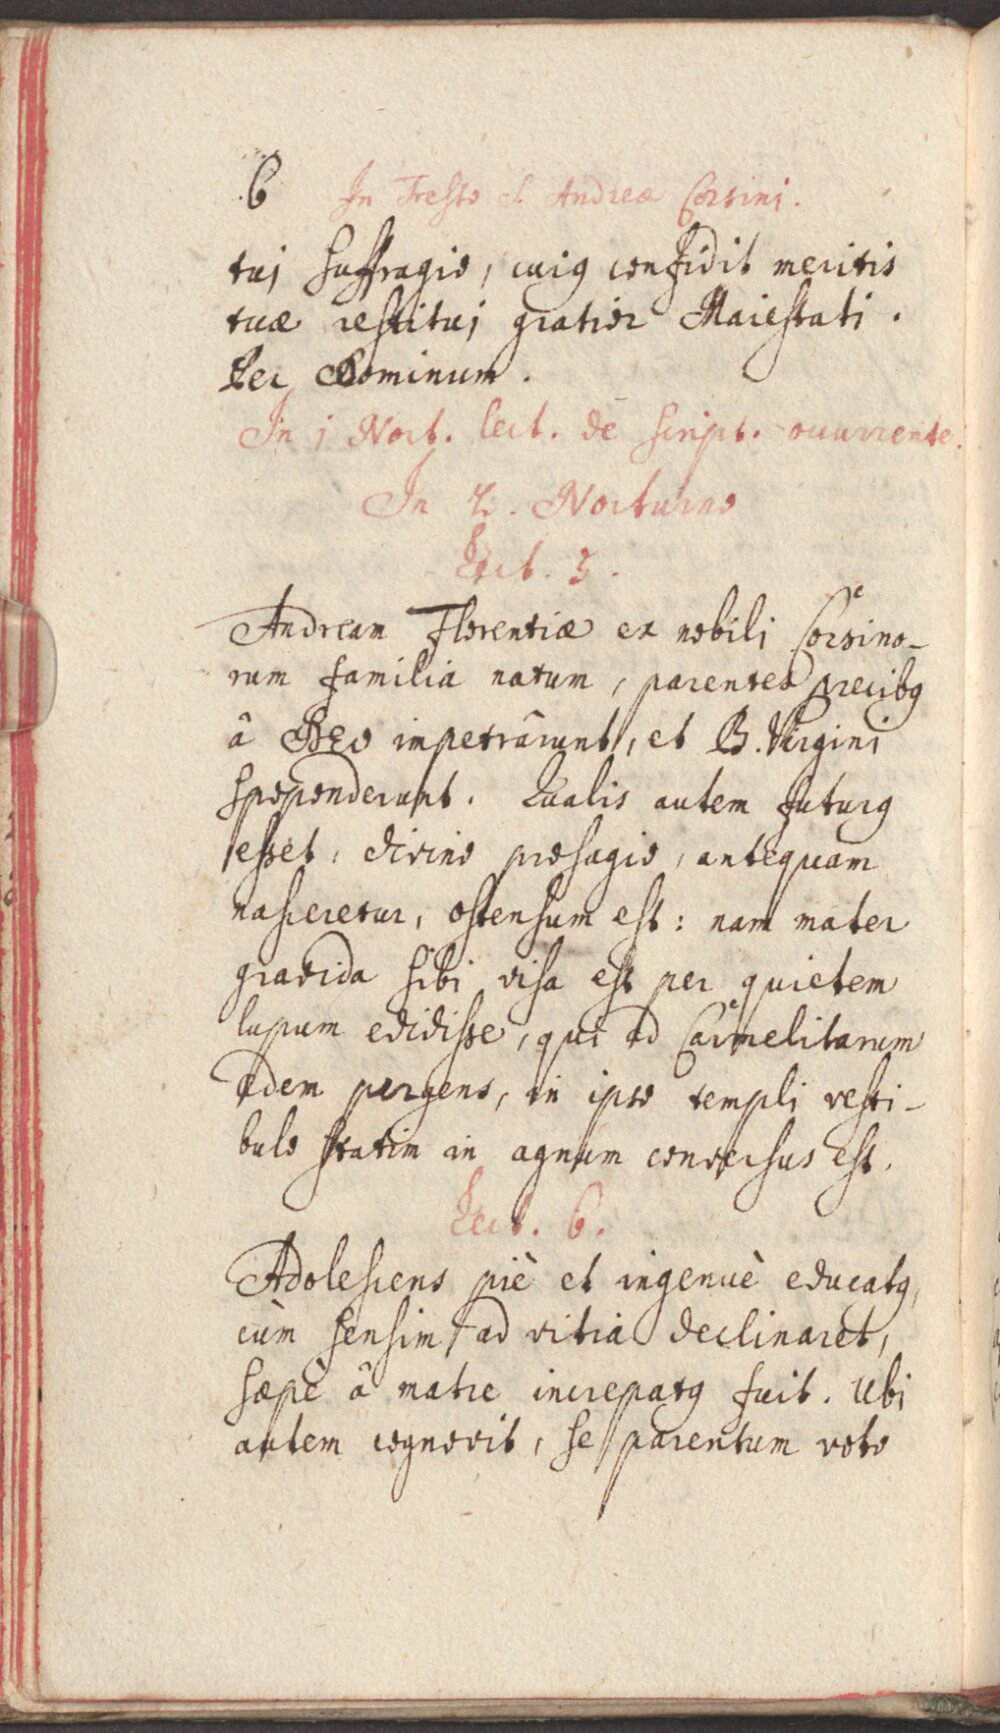 6 In Festo S. Andreæ Corsini.
tui suffragio, cuiꝰ confidit meritis
tuæ restitui gratior Maiestati.
Per Dominum.
In j Noct. lect. de script. occurrente.
In 2. Nocturno
Lect. 5.
Andream Florentiæ ex nobili Corsino-
rum familia natum, parentes precibꝰ
â Deo impetrârunt, et B. Virgini
spoponderunt. Qualis autem futurꝰ
esset, divino præsagio, antequam
nasceretur, ostensum est: nam mater
gravida sibi visa est per quietem
lupum edidisse, qui ad Carmelitarum
ædem pergens, in ipso templi vesti-
bulo statim in agnum conversus est.
Lect. 6.
Adolescens piè et ingenuè educatꝰ,
cùm sensim ad vitia declinaret,
sæpè â matre increpatꝰ fuit. Ubi
autem cognovit, se parentum voto